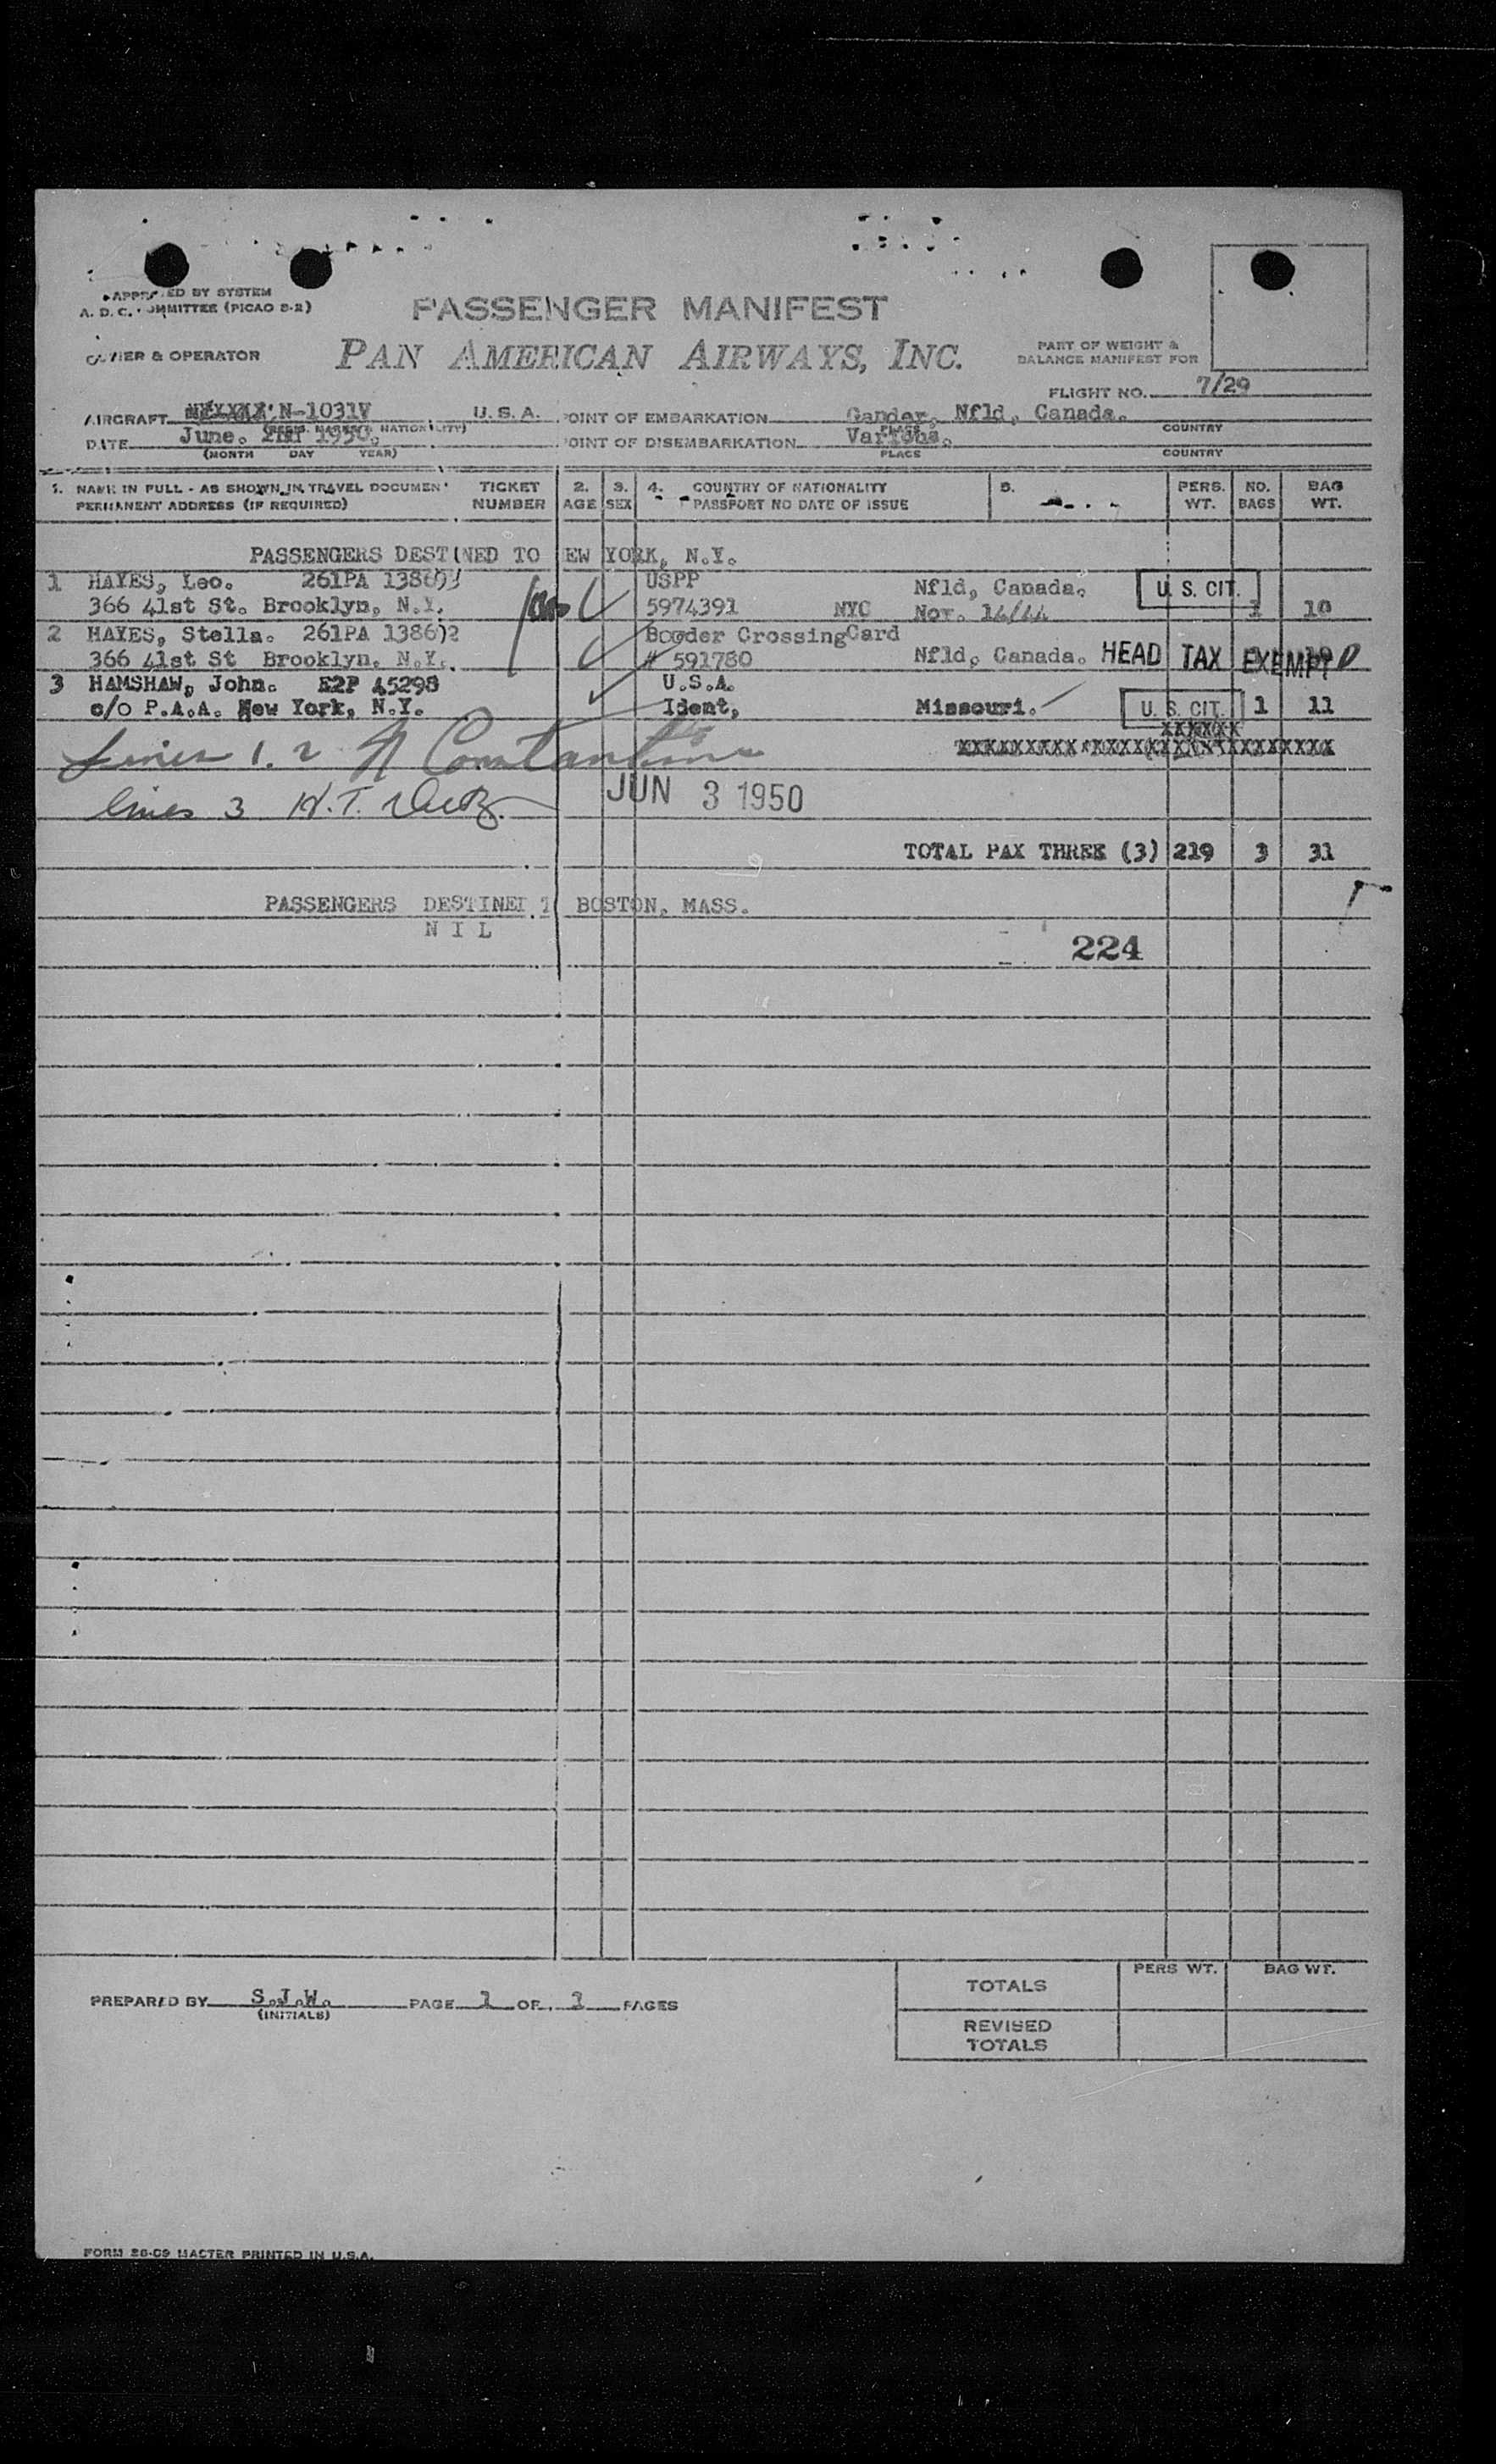 PASSENGER MANIFEST
A. D. C. COMMITTEE (PICAO 8-2)
& OPERATOR
PAN AMERICAN AIRWAYS, INC.
PART OF WEIGHT &
BALANCE MANIFEST FOR
FLIGHT NO. 7/29
AIRCRAFT N-1031V U. S. A. POINT OF EMBARKATION Gander, Nfld, Canada.
PLACE COUNTRY
DATE June. 1950. POINT OF DISEMBARKATION Various.
(MONTH DAY YEAR) PLACE COUNTRY
1. NAME IN FULL - AS SHOWN IN TRAVEL DOCUMENT TICKET 2. 3. 4. COUNTRY OF NATIONALITY 5. PERS. NO. BAG
PERMANENT ADDRESS (IF REQUIRED) NUMBER AGE SEX PASSPORT NO DATE OF ISSUE WT. BAGS WT.
PASSENGERS DESTINED TO EW YORK, N.Y.
1 HAYES, Leo. 261PA USPP Nfld, Canada. U. S. CIT.
366 41st St. Brooklyn, N.Y. 5974391 NYC Nov. 14/44 1 10
2 HAYES, Stella. 261PA Booder CrossingCard
366 41st St Brooklyn, N.Y. # 591780 Nfld, Canada. HEAD TAX EXEMPT
3 HAMSHAW, John. E2P 45298 U.S.A.
c/o P.A.A. New York, N.Y. Ident, Missouri. U. S. CIT. 1 11
XXXXXX
Lines 1. 2 Constantine
lines 3 H.T.
JUN 3 1950
TOTAL PAX THREE (3) 219 3 31
PASSENGERS DESTINED T BOSTON, MASS.
N I L
224
PERS WT. BAG WT.
TOTALS
PREPARED BY S.J.W. PAGE 1 OF 1 PAGES
(INITIALS)
REVISED
TOTALS
FORM 28-09 MASTER PRINTED IN U.S.A.